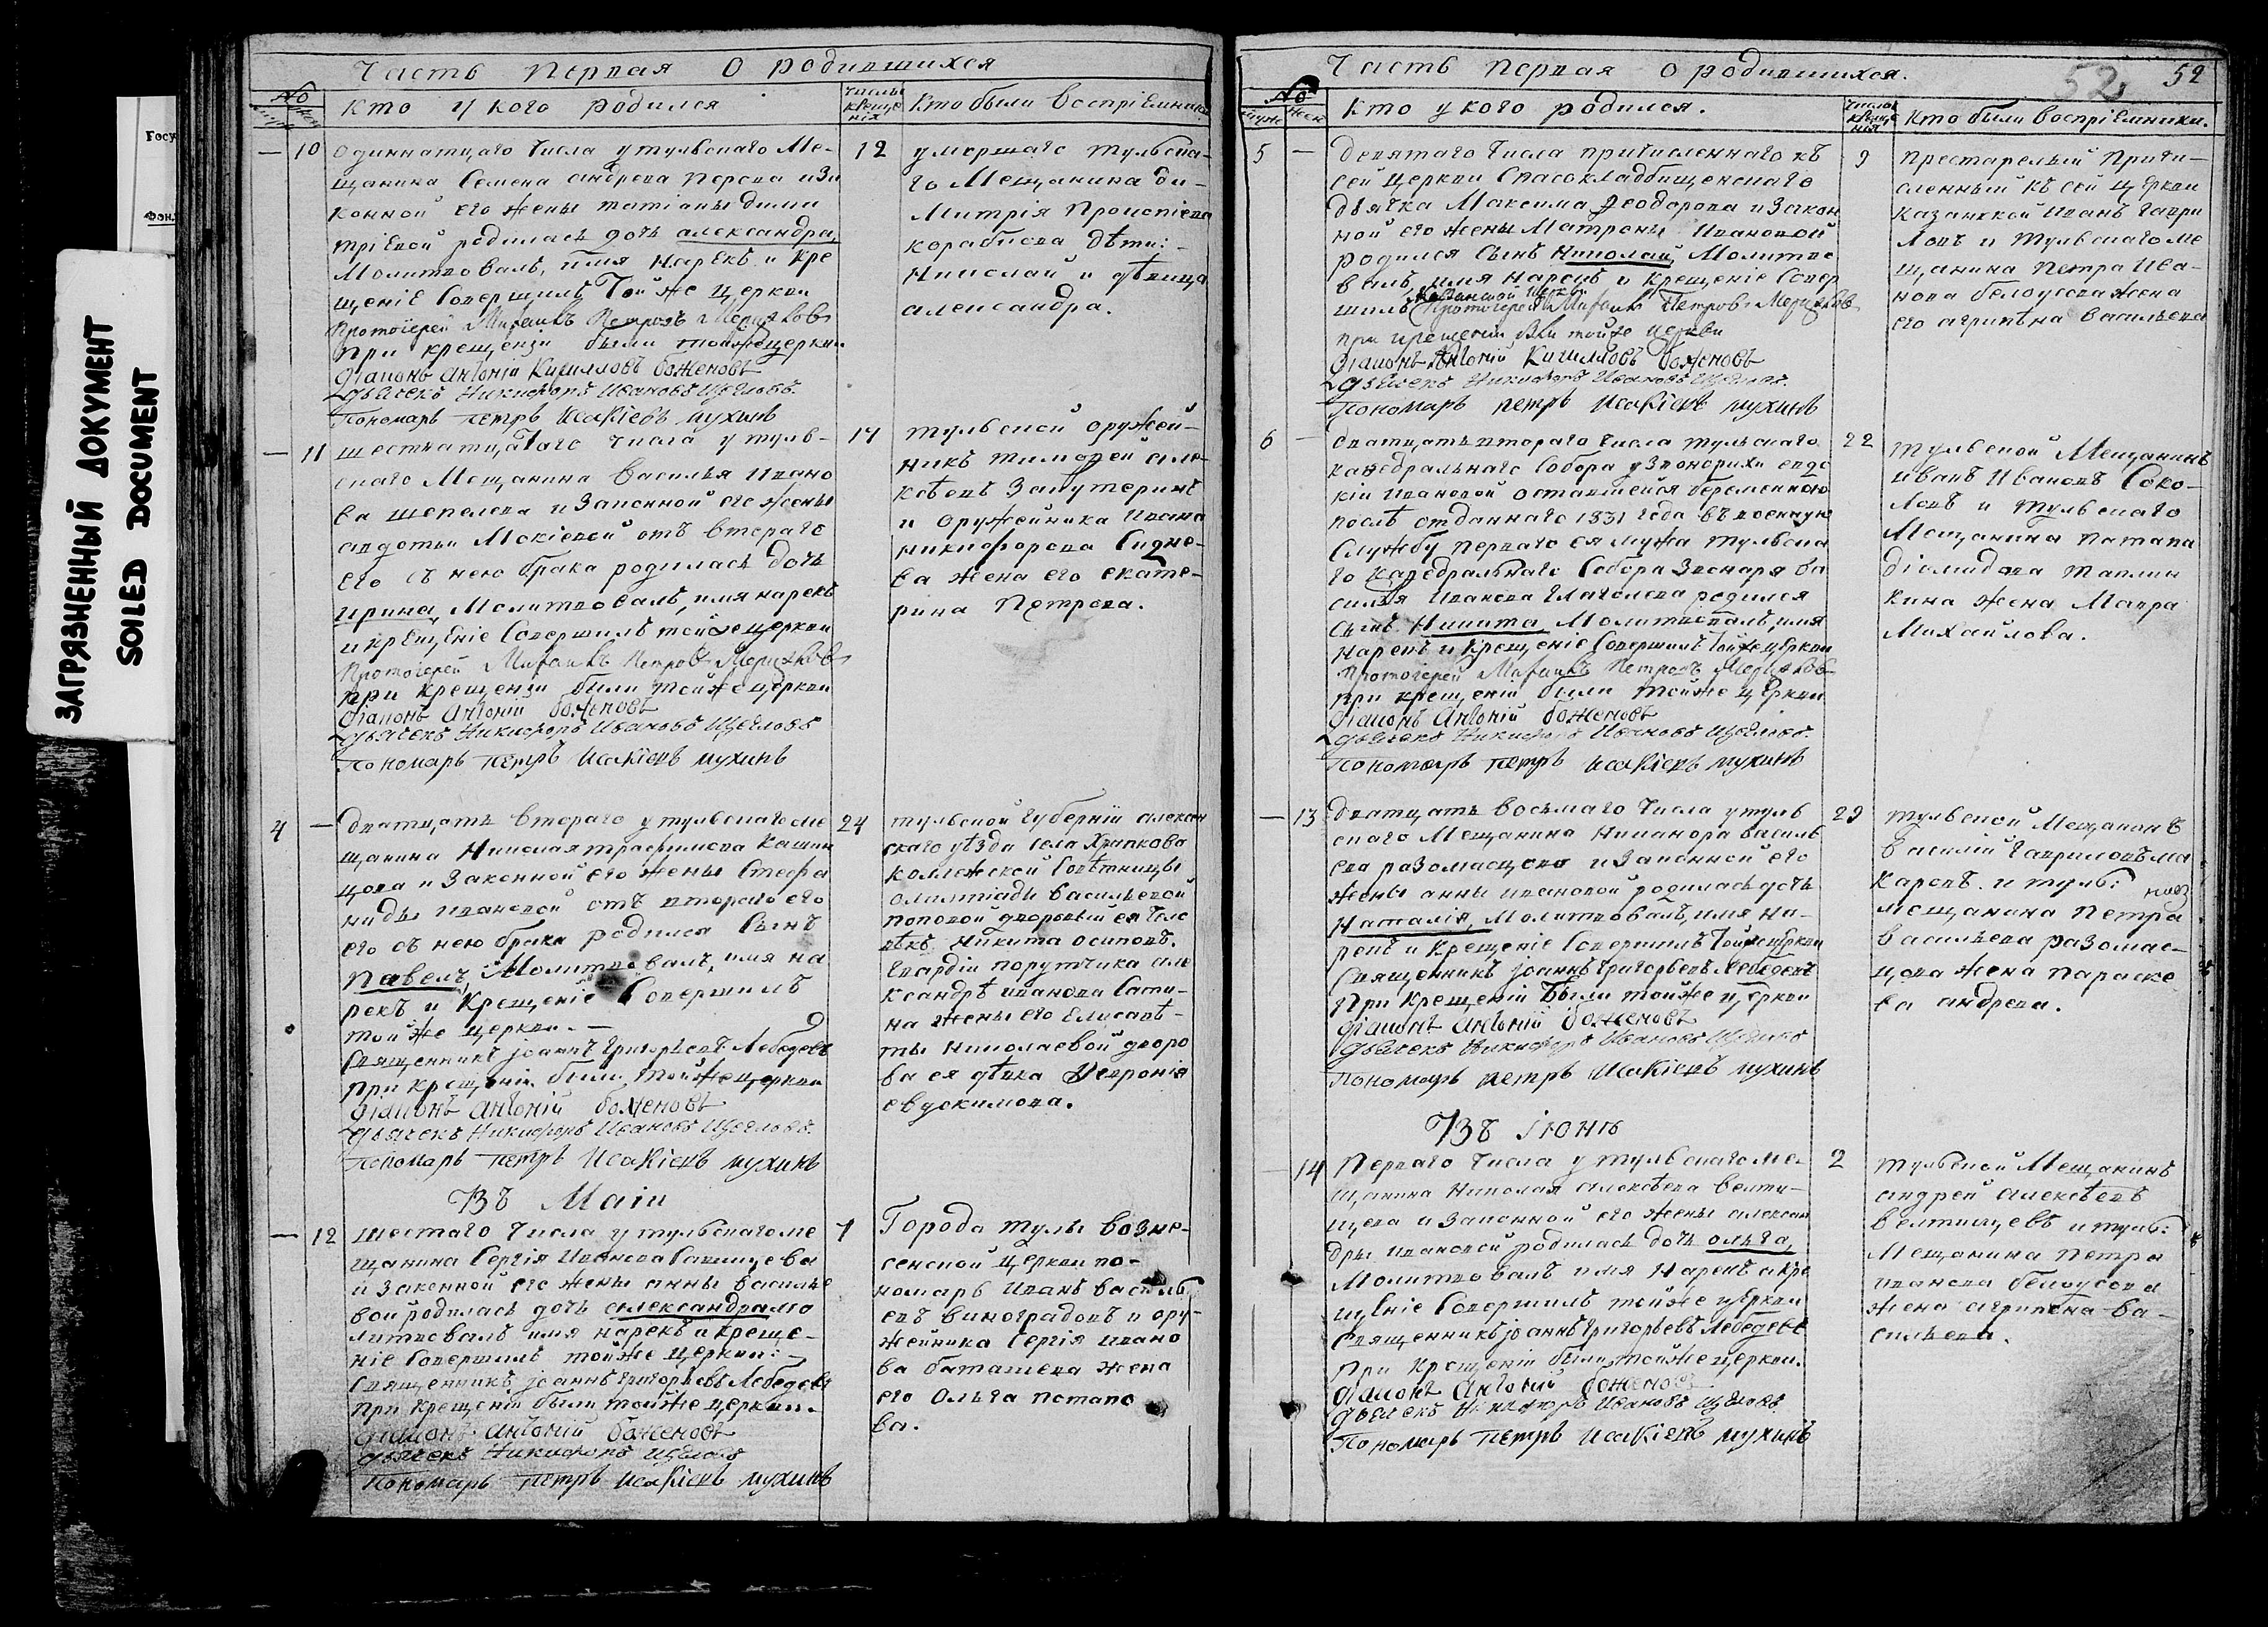 ЗАГРЯЗНЕННЫЙ ДОКУМЕНТ
SOILED DOCUMENT
Часть Первая О родившихся
№
Кто у кого родился
Числа креще
нія
Кто были Воспріемники
10
одиннатцаго Числа у тульскаго Ме-
щанина Семена андреева
конной его жены татіаны дими
тріевой родилась дочь александра,
Молитвовалъ, имя Нарекъ и Кре
щеніе Совершилъ Той же Церкви
Протоіерей Михаилъ Петровъ
При крещеніи были тойже церкви
Діаконъ Антоній Кирилловъ Боженовъ
дьячекъ Никифоръ Ивановъ Щегловъ
Пономарь петръ Исакіевъ мухинъ
12
умершаго тульска-
го Мещанина ди-
митрія
дѣти:
Николай и дѣвица
александра.
11
шестнатцатаго числа у туль-
скаго Мещанина Василья Ивано
ва шепелева и Законной его жены
авдотьи Мокіевой отъ втораго
его съ нею брака родилась дочь
ирина, Молитвовалъ, имя нарекъ
и крещеніе Совершилъ тойже церкви
Протоіерей Михаилъ Петровъ
при Крещеніи были тойже церкви
діаконъ Антоній Боженовъ
дьячекъ Никифоръ Ивановъ Щегловъ
Пономарь петръ Исакіевъ мухинъ
17
тульской оружей-
никъ тимофей але-
ксѣевъ
и оружейника Ивана
никифорова
ва жена его екате-
рина Петрова.
4
дватцать втораго у тульскаго ме
щанина Николая трофимова Кашин
цова и Законной его жены Стефа
ниды ивановой отъ втораго его
его съ нею брака родился Сынъ
Павелъ, Молитвовалъ, имя на
рекъ и Крещеніе Совершилъ
той же церкви. —
Священникъ Іоаннъ Григорьевъ Лебедевъ
при крещеніи были тойже церкви
діаконъ Антоній Боженовъ
дьячекъ Никифоръ Ивановъ Щегловъ.
Пономарь петръ Исакіевъ мухинъ
24
тульской Губерніи алексин
скаго уѣзда села Храпкова
коллежской Совѣтницы
олимпіады Васильевой
поповой дворовый ея Чело
вѣкъ Никита осиповъ.
Гвардіи порутчика але
ксандра иванова Сати-
на жены его Елисаве-
ты Николаевой дворо
вая дѣвка Февронія
евдокимова.
Въ Маіи
12
шестаго Числа у тульскаго ме
щанина Сергія Иванова
и Законной его жены анны василье
вой родилась дочь александра мо
литвовалъ имя нарекъ и креще-
ніе Совершилъ тойже церкви: —
Священникъ Іоаннъ Григорьевъ Лебедевъ
при крещеніи были тойже церкви.
діаконъ Антоній Боженовъ
дьячекъ Никифоръ Щегловъ
Пономарь петръ Исакіевъ мухинъ
7
Города тулы возне-
сенской церкви по-
номарь Иванъ василь
евъ виноградовъ и ору-
жейника Сергія ивано
ва баташева жена
его Ольга потапо
ва.
Часть Первая О родившихся.
52
52
№
муж
жен
Кто у кого родился.
Числа
креще
нія
Кто были Воспріемники.
5
девятаго Числа причисленнаго къ
сей Церкви Спасокладбищенскаго
дьячка Максима Ѳеодорова и Закон
ной его жены Матроны Ивановой
родился Сынъ Николай, Молитво
валъ, имя нарекъ и крещеніе Совер
шилъ Протоіерей Михаилъ Петровъ
при крещеніи были тойже церкви
Діаконъ Антоній Кирилловъ Боженовъ
дьячекъ Никифоръ Ивановъ Щегловъ.
Пономарь петръ Исакіевъ мухинъ
9
престарелый Причи-
сленный къ сей Церкви
казанской Иванъ Гаври
ловъ и Тульскаго ме
щанина Петра Ива-
нова белоусова жена
его агрипѣна Васильева
6
дватцать втораго Числа тульскаго
Каѳедральнаго Собора у Звонорихи евдо
кіи Ивановой оставшейся беременною
послѣ отданнаго 1831 года въ военную
Службу перваго ея мужа тульска
го Каѳедральнаго Собора Звонаря ва
силья Иванова Глаголева родился
Сынъ Никита Молитвовалъ, имя
Нарекъ и Крещеніе Совершилъ Тойже церкви
Протоіерей Михаилъ Петровъ
при крещеніи были тойже церкви
Діаконъ Антоній Боженовъ
дьячекъ Никифоръ Ивановъ Щегловъ.
Пономарь петръ Исакіевъ мухинъ
22
тульской Мещанинъ
иванъ Ивановъ Соко-
ловъ и тульскаго
Мещанина потапа
діомидова таплин
кина жена Мавра
Михайлова.
13
дватцать Восьмаго Числа у туль
скаго Мещанина Никанора василь
ева разомасцева и Законной его
жены анны ивановой родилась дочь
Наталія, Молитвовалъ, имя на-
рекъ и Крещеніе Совершилъ Тойже церкви
Священникъ Іоаннъ Григорьевъ Лебедевъ
При Крещеніи Были тойже церкви
діаконъ Антоній Боженовъ
дьячекъ Никифоръ Ивановъ Щегловъ
Пономарь петръ Исакіевъ мухинъ
29
тульской Мещанинъ
василій Гавриловъ ма
каровъ. и туль:
мещанина Петра
васильева разомас-
цова жена параске
ва андреева.
Въ Іюнѣ
14
Перваго Числа у тульскаго ме-
щанина Николая алексѣева велти-
щева и Законной его жены алексан
дры ивановой родилась дочь ольга,
Молитвовалъ имя Нарекъ и кре
щеніе Совершилъ тойже церкви
Священникъ Іоаннъ Григорьевъ Лебедевъ
при Крещеніи были тойже церкви.
діаконъ Антоній Боженовъ
дьячекъ Никифоръ Ивановъ Щегловъ
Пономарь петръ Исакіевъ мухинъ
2
тульской Мещанинъ
андрей алексѣевъ
велтищевъ и туль:
Мещанина Петра
иванова белоусова
жена агрипена ва-
сильева.